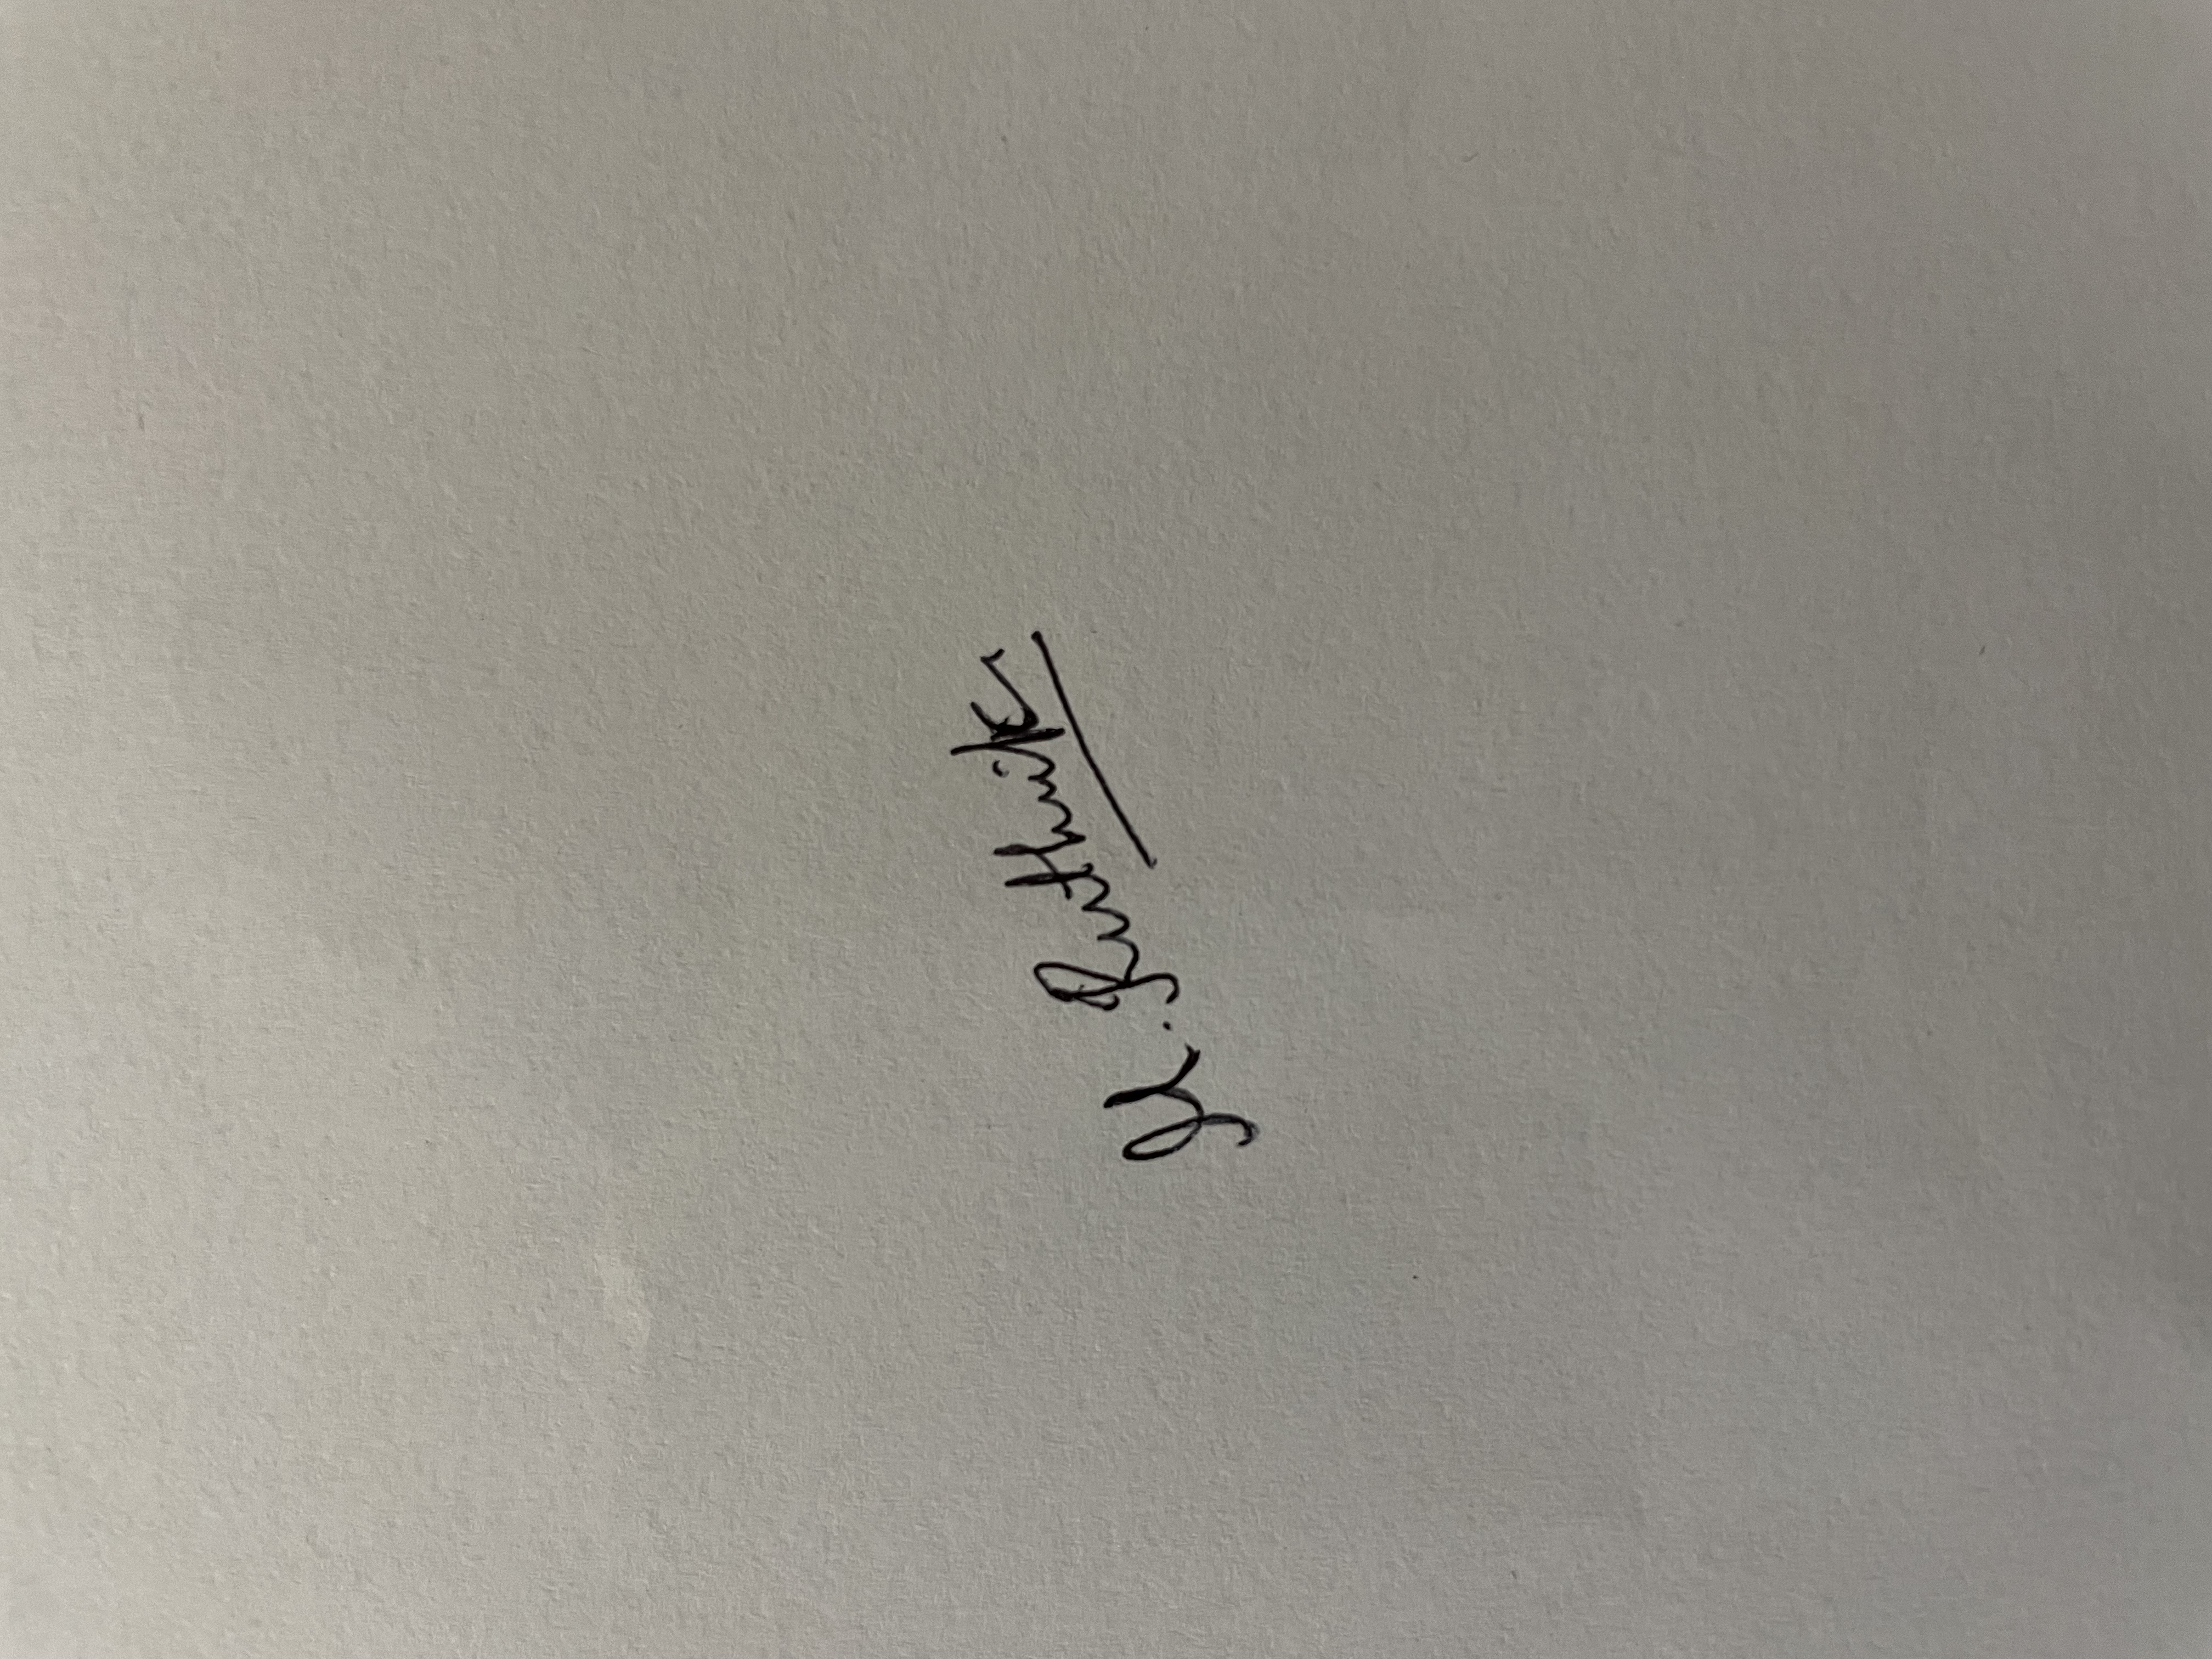 M. Ruthvik